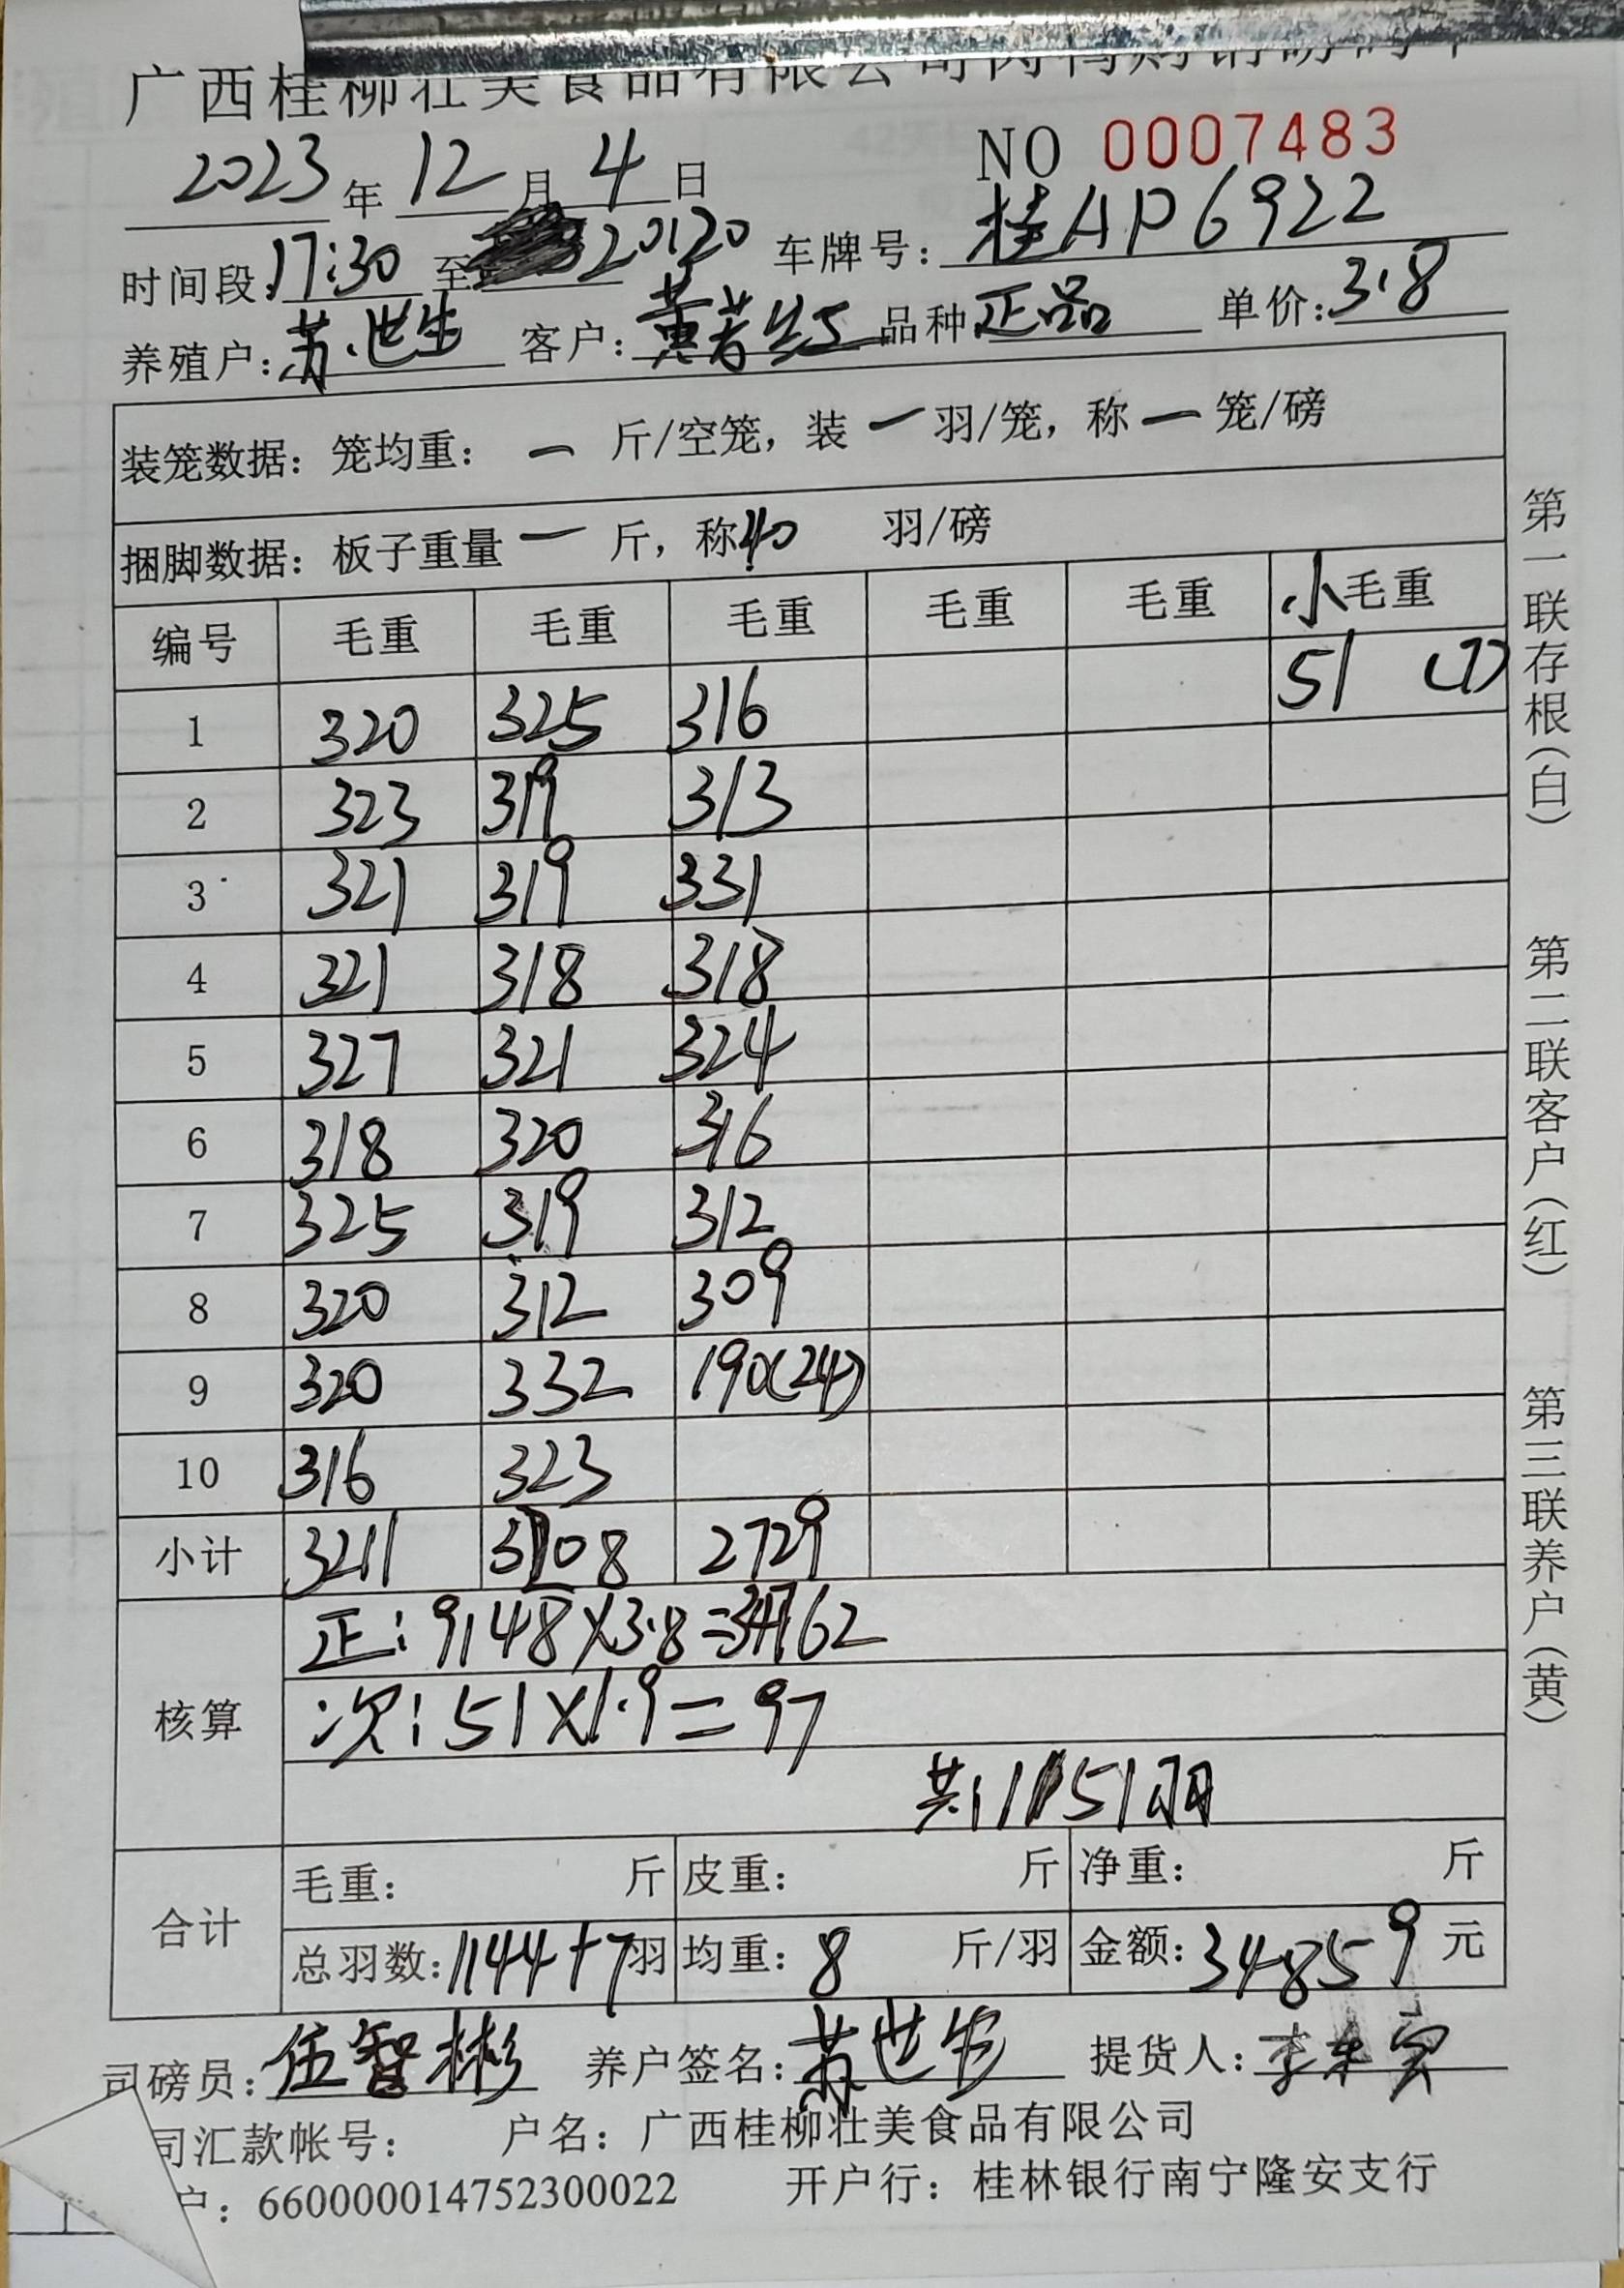 广西桂柳壮美食品有限公司肉鸭购销磅码单
NO 0007483
2023年12月4日
时间段:17:30至20:20 车牌号:桂AP6922
养殖户:苏世生 客户: 品种正品 单价:3.8
装笼数据:笼均重: 一 斤/空笼,装一羽/笼,称一笼/磅
捆脚数据:板子重量一斤,称40羽/磅
编号 毛重 毛重 毛重 毛重 毛重 小毛重
1 320 325 316 51 (7)
2 323 319 313
3 321 319 331
4 321 318 318
5 327 321 324
6 318 320 316
7 325 319 312
8 320 312 309
9 320 332 190(24)
10 316 323
小计 3211 3208 2729
核算
正:9148×3.8=34762
次:51×1.9=97
共:1151羽
合计
毛重: 斤 皮重: 斤 净重: 斤
总羽数:1144+7羽 均重:8斤/羽 金额:34859元
司磅员:伍智彬 养户签名:苏世生 提货人:
司汇款帐号: 户名:广西桂柳壮美食品有限公司
户:660000014752300022 开户行:桂林银行南宁隆安支行
第一联存根(白)
第二联客户(红)
第三联养户(黄)